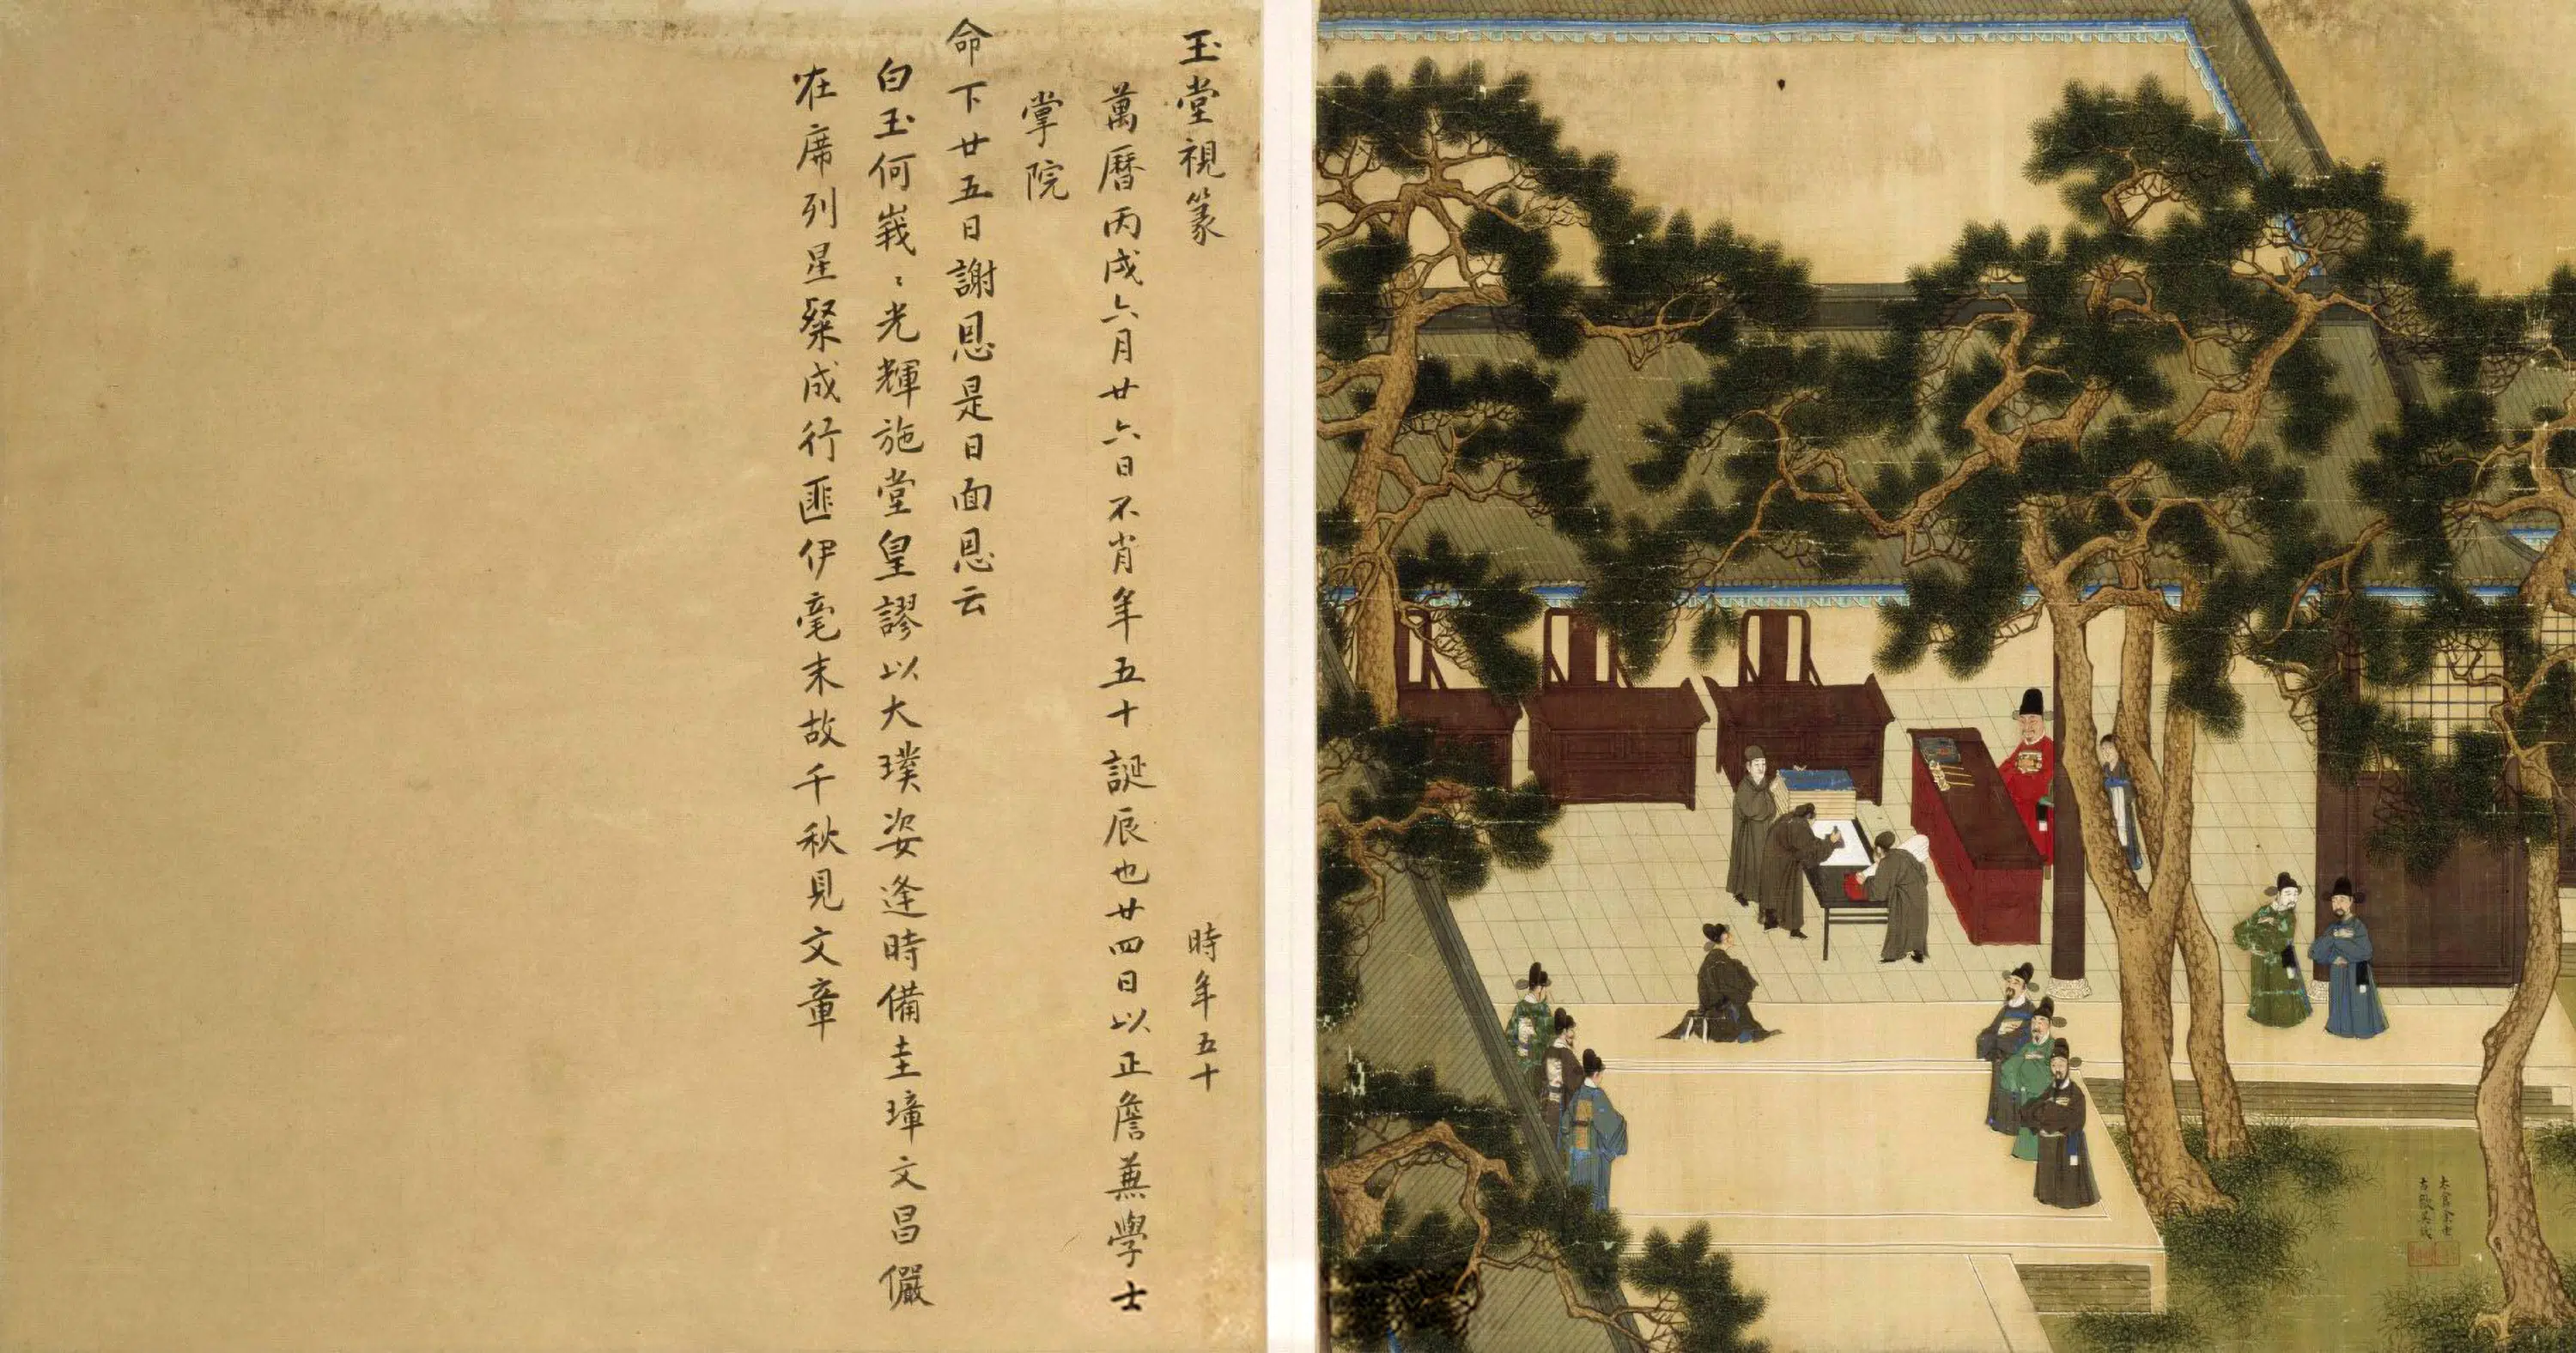 玉堂視篆
時年五十
萬曆丙戌六月廿六日不肖年五十誕辰也廿四日以正詹兼學士
掌院
命下廿五日謝恩是日面恩云
白玉何峩〻光輝施堂皇謬以大璞姿逢時備圭璋文昌儼
在席列星粲成行匪伊毫末故千秋見文章